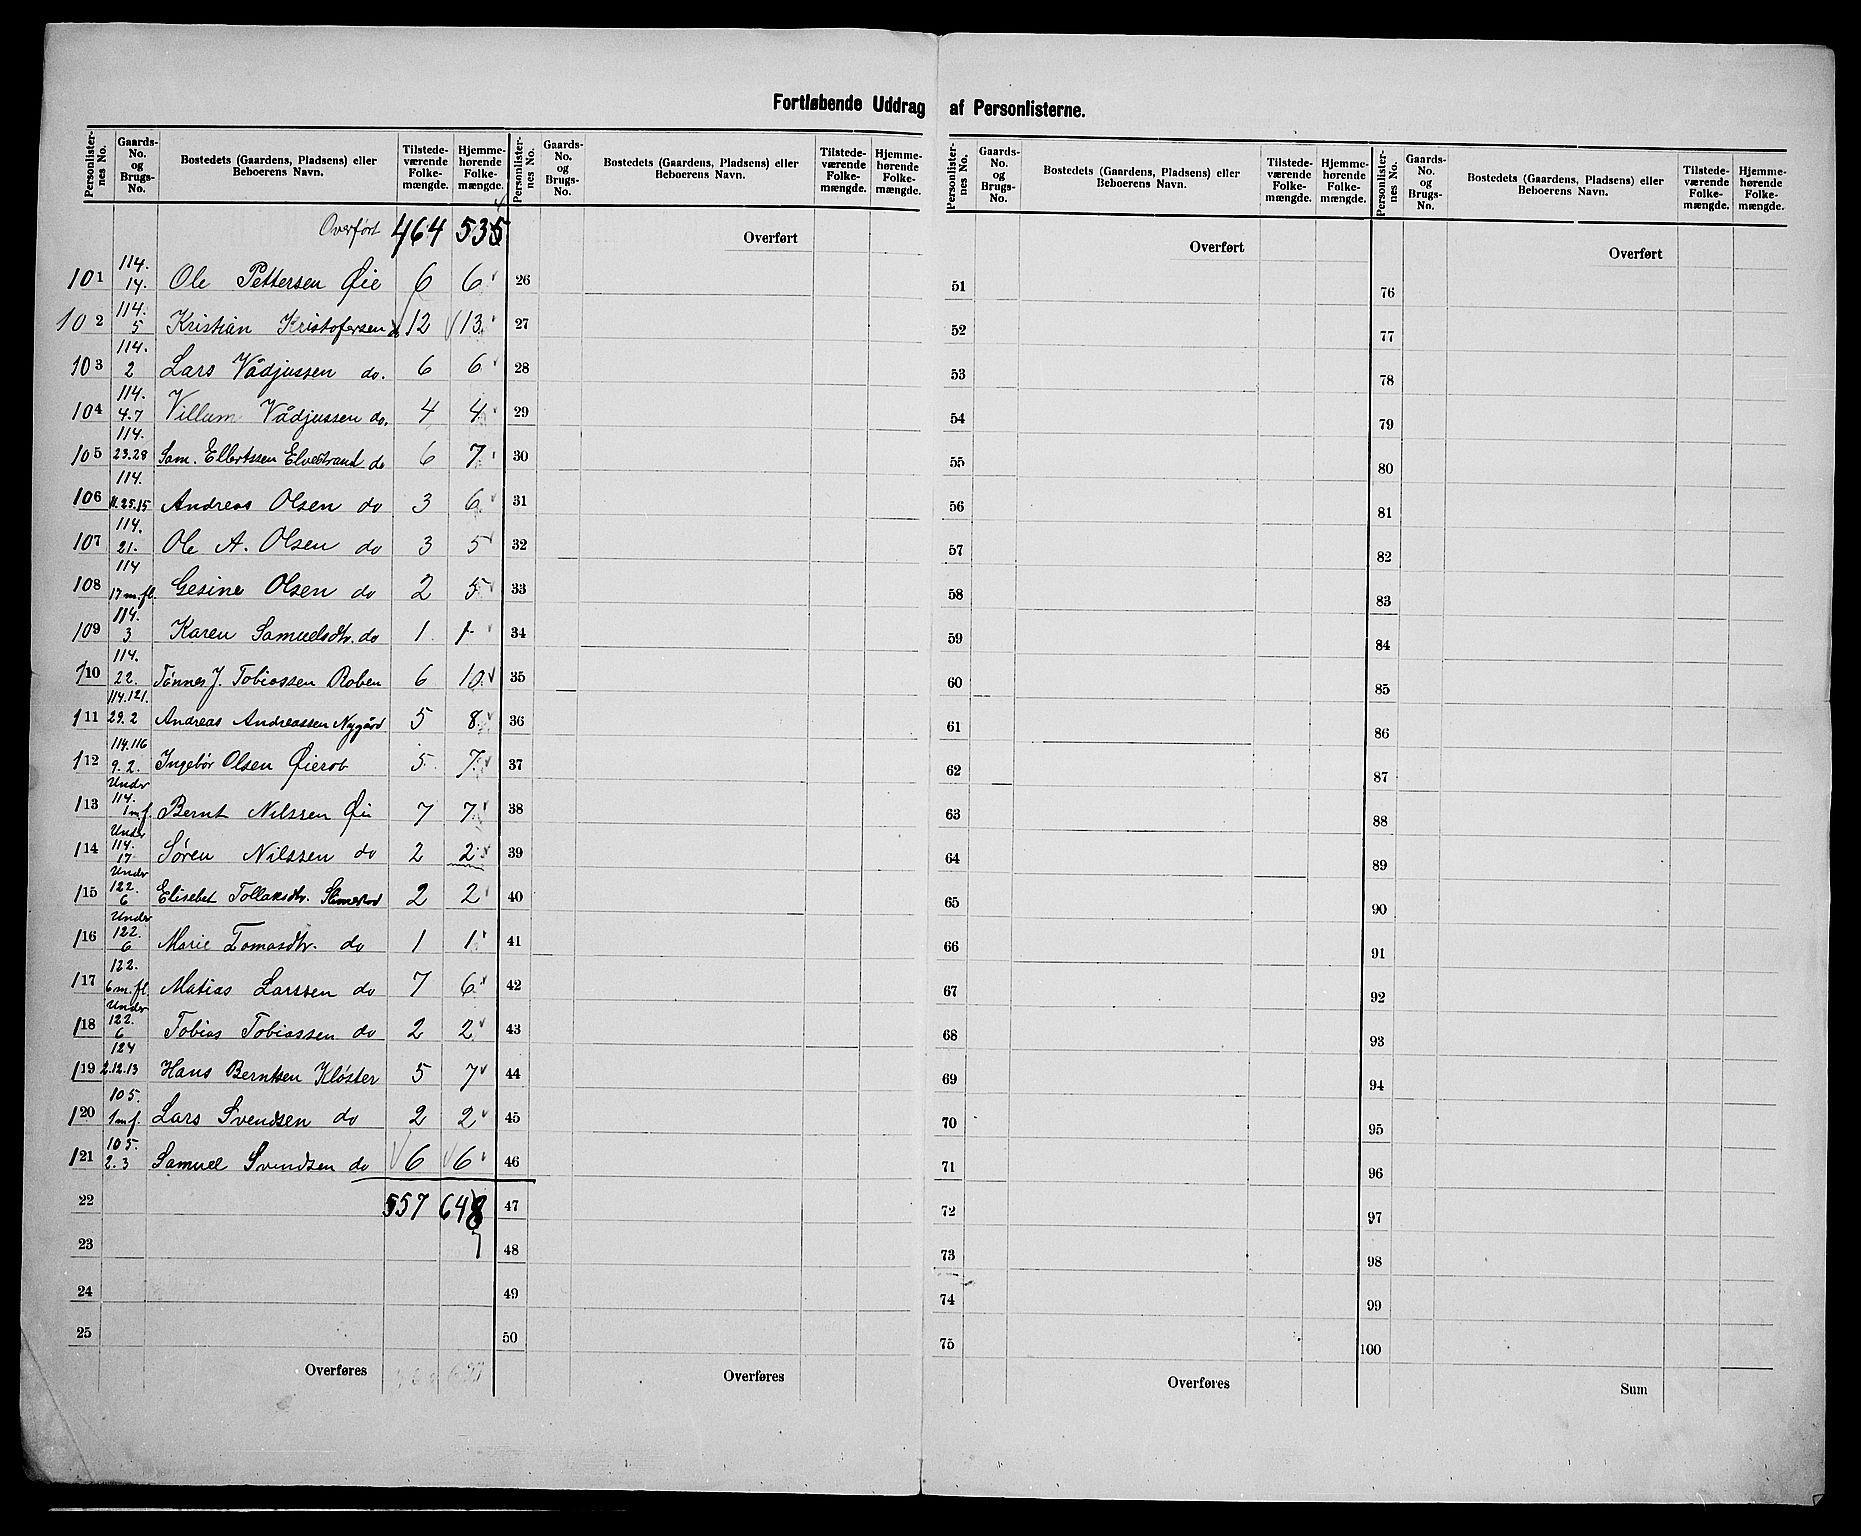 Fortløbende Uddrag af Personlisterne.
Personlister-nes No. Gaards-No. og Brugs-No. Bostedets (Gaardens, Pladsens) eller Beboerens Navn. Tilstede-værende Folke-mængde. Hjemme-hørende Folke-mængde.
Overført 464 535
101 114. 14. Ole Pettersen Øie 6 6
102 114. 5 Kristian Kristofersen 12 13
103 114. 2 Lars Vådjussen do. 6 6
104 114. 4.7 Villum Vådjussen do. 4 4
105 114. 23.28 Sam. Ellertssen Elvestrand do 6 7
106 114. 11.25.15 Andreas Olsen do 3 6
107 114. 21. Ole A. Olsen do 3 5
108 114 17 m.fl. Gesine Olsen do 2 5
109 114. 3 Karen Samuelsdtr. do 1 1
110 114. 22. Tønnes J. Tobiassen Roben 6 10
111 114.121. 29.2 Andreas Andreassen Nygård 5 8
112 114.116 9.2. Ingebor Olsen Øierob 5 7
113 Under 114. 1 m.f. Bernt Nilssen Øie 7 7
114 Under 114. 17 Søren Nilssen do 2 2
115 Under 122. 6 Elisebet Tollaksdtr. 2 2
116 Under 122. 6 Marie Tomasdtr. do 1 1
117 122. 6 m.fl. Matias Larssen do 7 6
118 Under 122. 6 Tobias Tobiassen do 2 2
119 124 2.12.13 Hans Berntsen Kløster 5 7
120 105. 1 m f. Lars Svendsen do 2 2
121 105. 2.3 Samuel Svendsen do 6 6
22 557 648
7
23
24
25
Overføres
Personlister-nes No. Gaards-No. og Brugs-No. Bostedets (Gaardens, Pladsens) eller Beboerens Navn. Tilstede-værende Folke-mængde. Hjemme-hørende Folke-mængde.
Overført
26
27
28
29
30
31
32
33
34
35
36
37
38
39
40
41
42
43
44
45
46
47
48
49
50
Overføres
Personlister-nes No. Gaards-No. og Brugs-No. Bostedets (Gaardens, Pladsens) eller Beboerens Navn. Tilstede-værende Folke-mængde. Hjemme-hørende Folke-mængde.
Overført
51
52
53
54
55
56
57
58
59
60
61
62
63
64
65
66
67
68
69
70
71
72
73
74
75
Overføres
Personlister-nes No. Gaards-No. og Brugs-No. Bostedets (Gaardens, Pladsens) eller Beboerens Navn. Tilstede-værende Folke-mængde. Hjemme-hørende Folke-mængde.
Overført
76
77
78
79
80
81
82
83
84
85
86
87
88
89
90
91
92
93
94
95
96
97
98
99
100
Sum